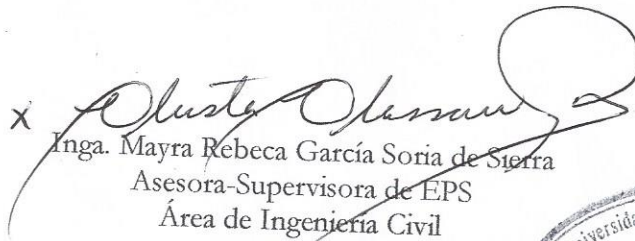 x
Inga. Mayra Rebeca García Soria de Sierra
Asesora-Supervisora de EPS
Área de Ingeniería Civil